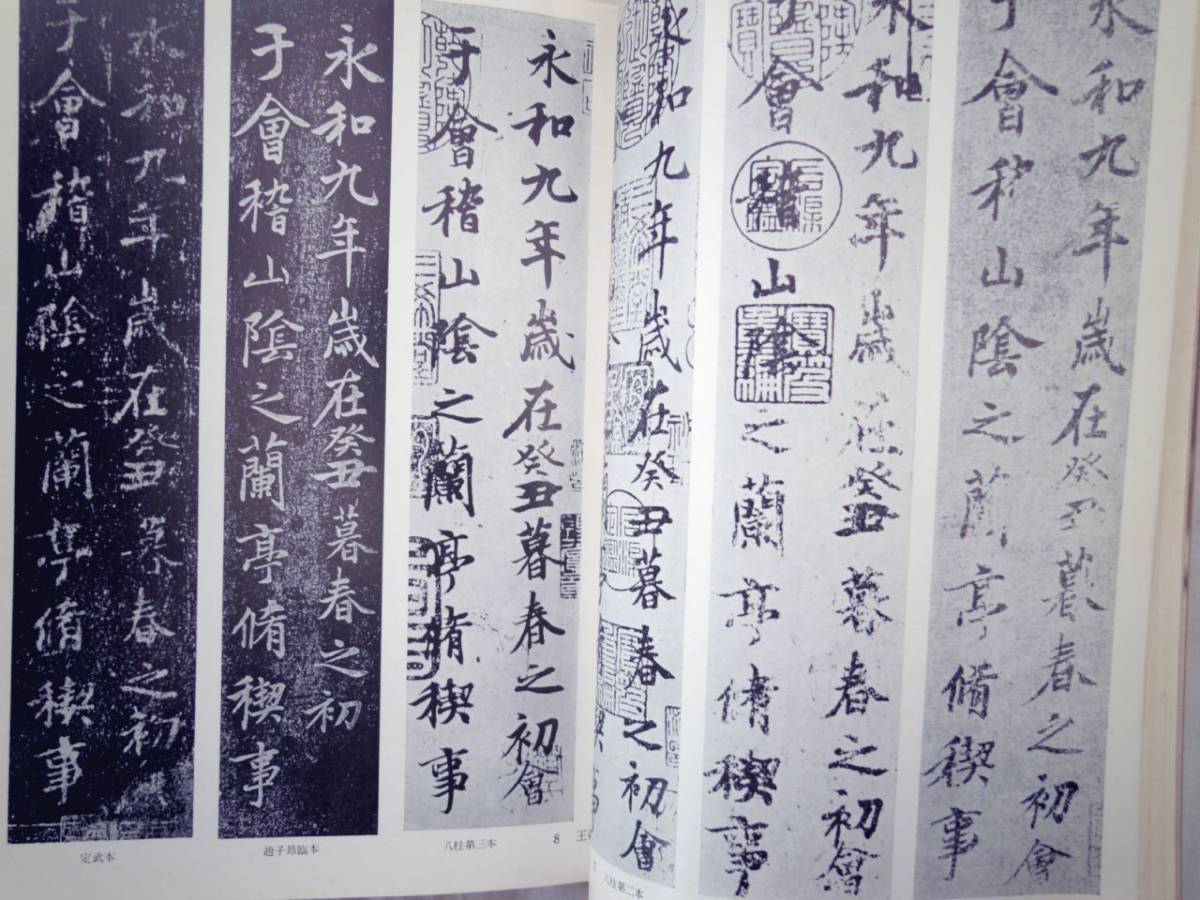 永和九年歲在癸丑暮春之初會
于會稽山陰之蘭亭脩禊事
永和九年歲在癸丑暮春之初會
于會稽山陰之蘭亭脩禊事
永和九年歲在癸丑暮春之初會
八柱第二本
7
永和九年歲在癸丑暮春之初會
于會稽山陰之蘭亭脩禊事
八柱第三本
8
王
永和九年歲在癸丑暮春之初
于會稽山陰之蘭亭脩禊事
趙子昂臨本
永和九年歲在癸丑暮春之初
于會稽山陰之蘭亭脩禊事
定武本